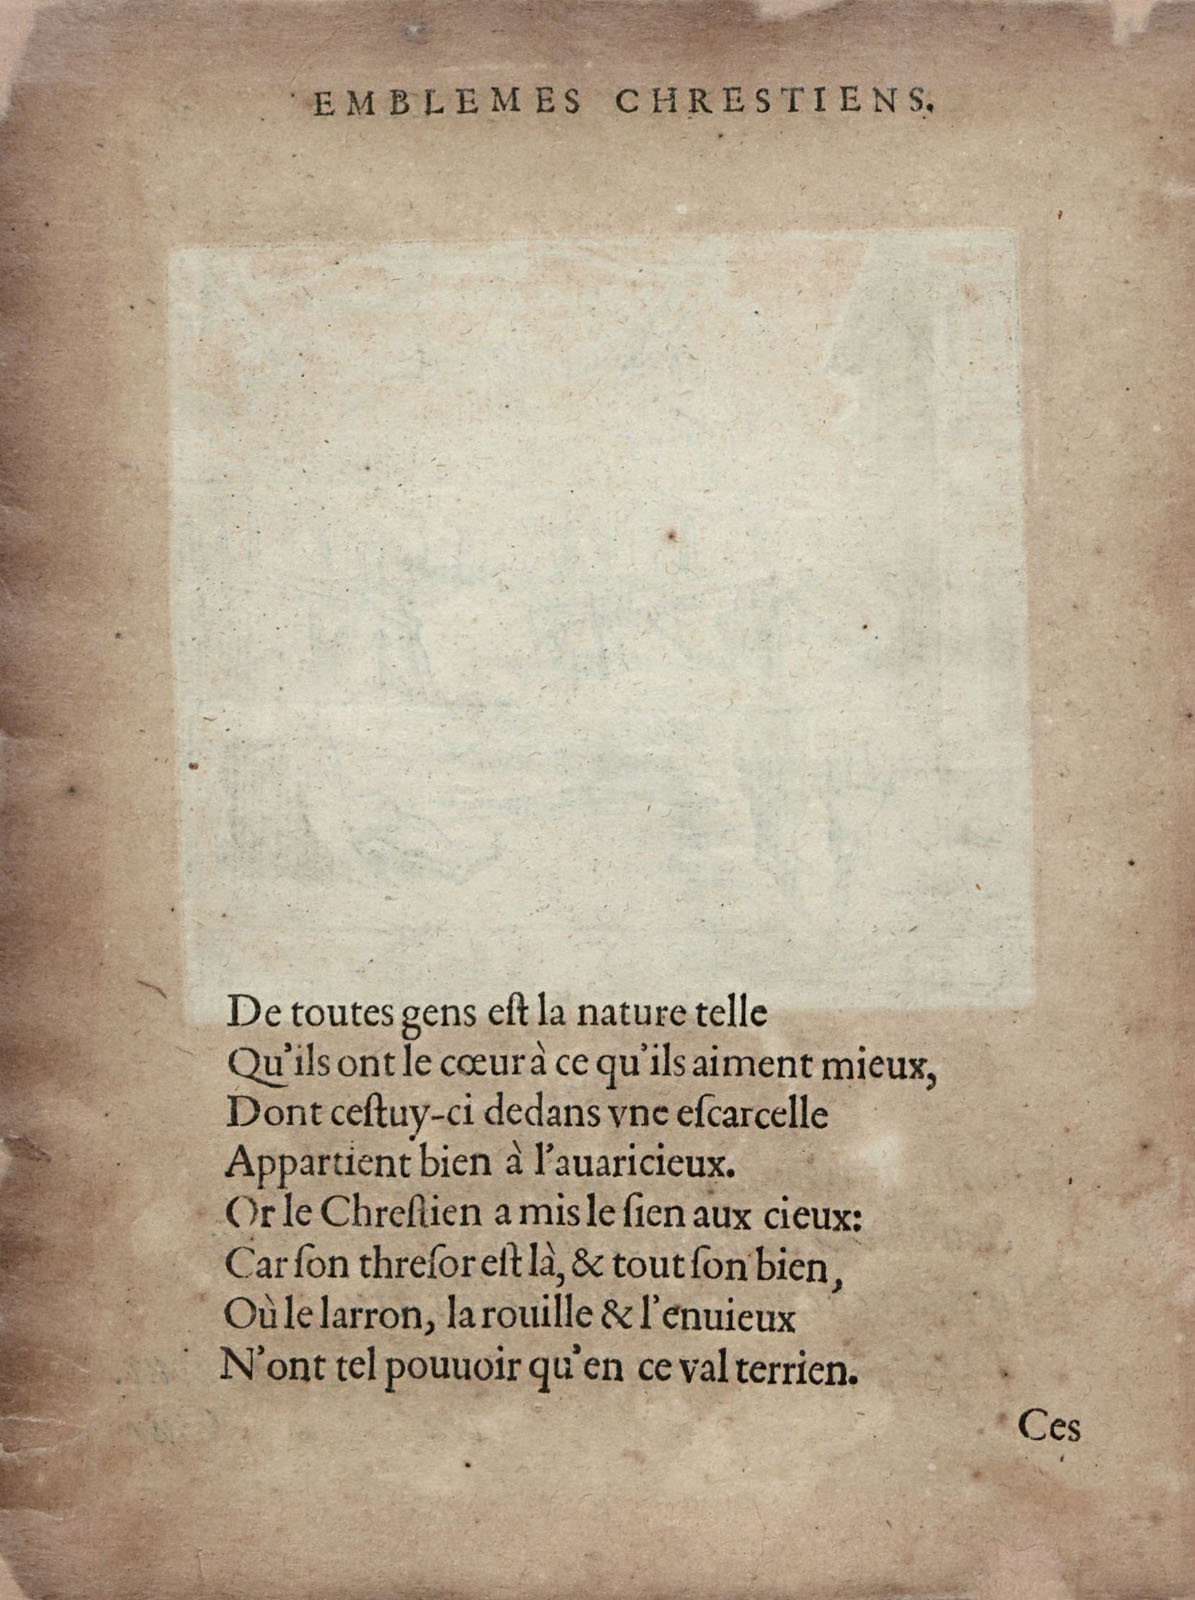 EMBLEMES CHRESTIENS.
De toutes gens eſt la nature telle
Qu'ils ont le cœur à ce qu'ils aiment mieux,
Dont ceſtuy-ci dedans vne eſcarcelle
Appartient bien à l'auaricieux.
Or le Chreſtien a mis le ſien aux cieux:
Car ſon threſor eſt là, & tout ſon bien,
Où le larron, la rouille & l'enuieux
N'ont tel pouuoir qu'en ce val terrien.
Ces